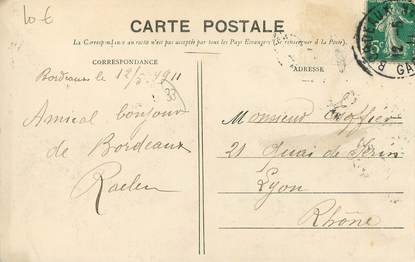 10 €
CARTE POSTALE
La Correspondance au recto n'est pas acceptée par tous les Pays Etrangers (Se renseigner à la Poste).
CORRESPONDANCE
ADRESSE
Bordeaux le 12/5 1911
Amical bonjour
de Bordeaux
Monsieur
21 Quai de Serin
Lyon
Rhône
5
GA